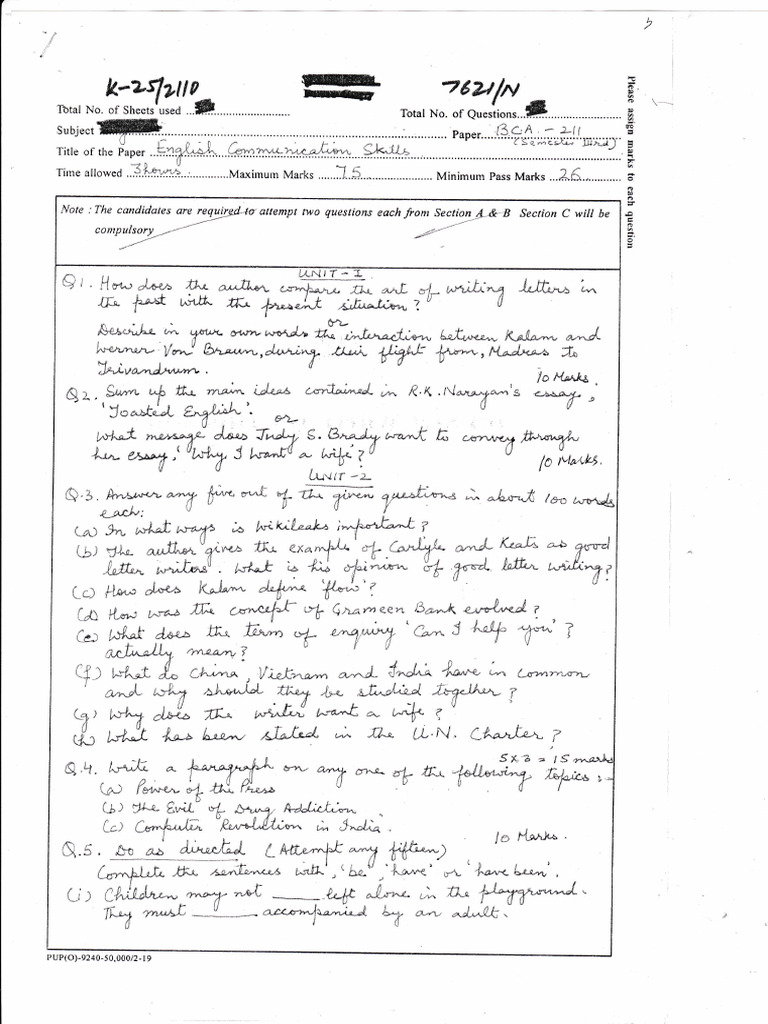 K-25/2110
7621/N
Total No. of Sheets used
Total No. of Questions
Subject
Paper BCA - 211
(Semester IIIrd)
Title of the Paper English Communication Skills
Time allowed 3 hours. Maximum Marks 75 Minimum Pass Marks 26
Please assign marks to each question
Note : The candidates are required to attempt two questions each from Section A & B Section C will be
compulsory
UNIT-I
Q1. How does the author compare the art of writing letters in
the past with the present situation?
or
Describe in your own words the interaction between Kalam and
Werner Von Braun, during their flight from, Madras to
Trivandrum.
10 Marks.
Q2. Sum up the main ideas contained in R.K. Narayan's essay,
'Toasted English'.
or
What message does Judy S. Brady want to convey through
her essay, 'Why I want a wife'?
10 Marks.
UNIT-2
Q.3. Answer any five out of the given questions in about 100 words
each:
(a) In what ways is Wikileaks important?
(b) The author gives the example of Carlyle and Keats as good
letter writers. What is his opinion of good letter writing?
(c) How does Kalam define 'flow'?
(d) How was the concept of Grameen Bank evolved?
(e) What does the term of enquiry 'Can I help you'?
actually mean?
(f) What do China, Vietnam and India have in common
and why should they be studied together?
(g) Why does the writer want a wife?
(h) What has been stated in the U.N. Charter?
5x3=15 marks
Q.4. Write a paragraph on any one of the following topics:-
(a) Power of the Press
(b) The Evil of Drug Addiction
(c) Computer Revolution in India.
10 Marks.
Q.5. Do as directed (Attempt any fifteen)
Complete the sentences with, 'be', 'have' or 'have been'.
(i) Children may not _____ left alone in the playground.
They must ______ accompanied by an adult.
PUP(O)-9240-50,000/2-19